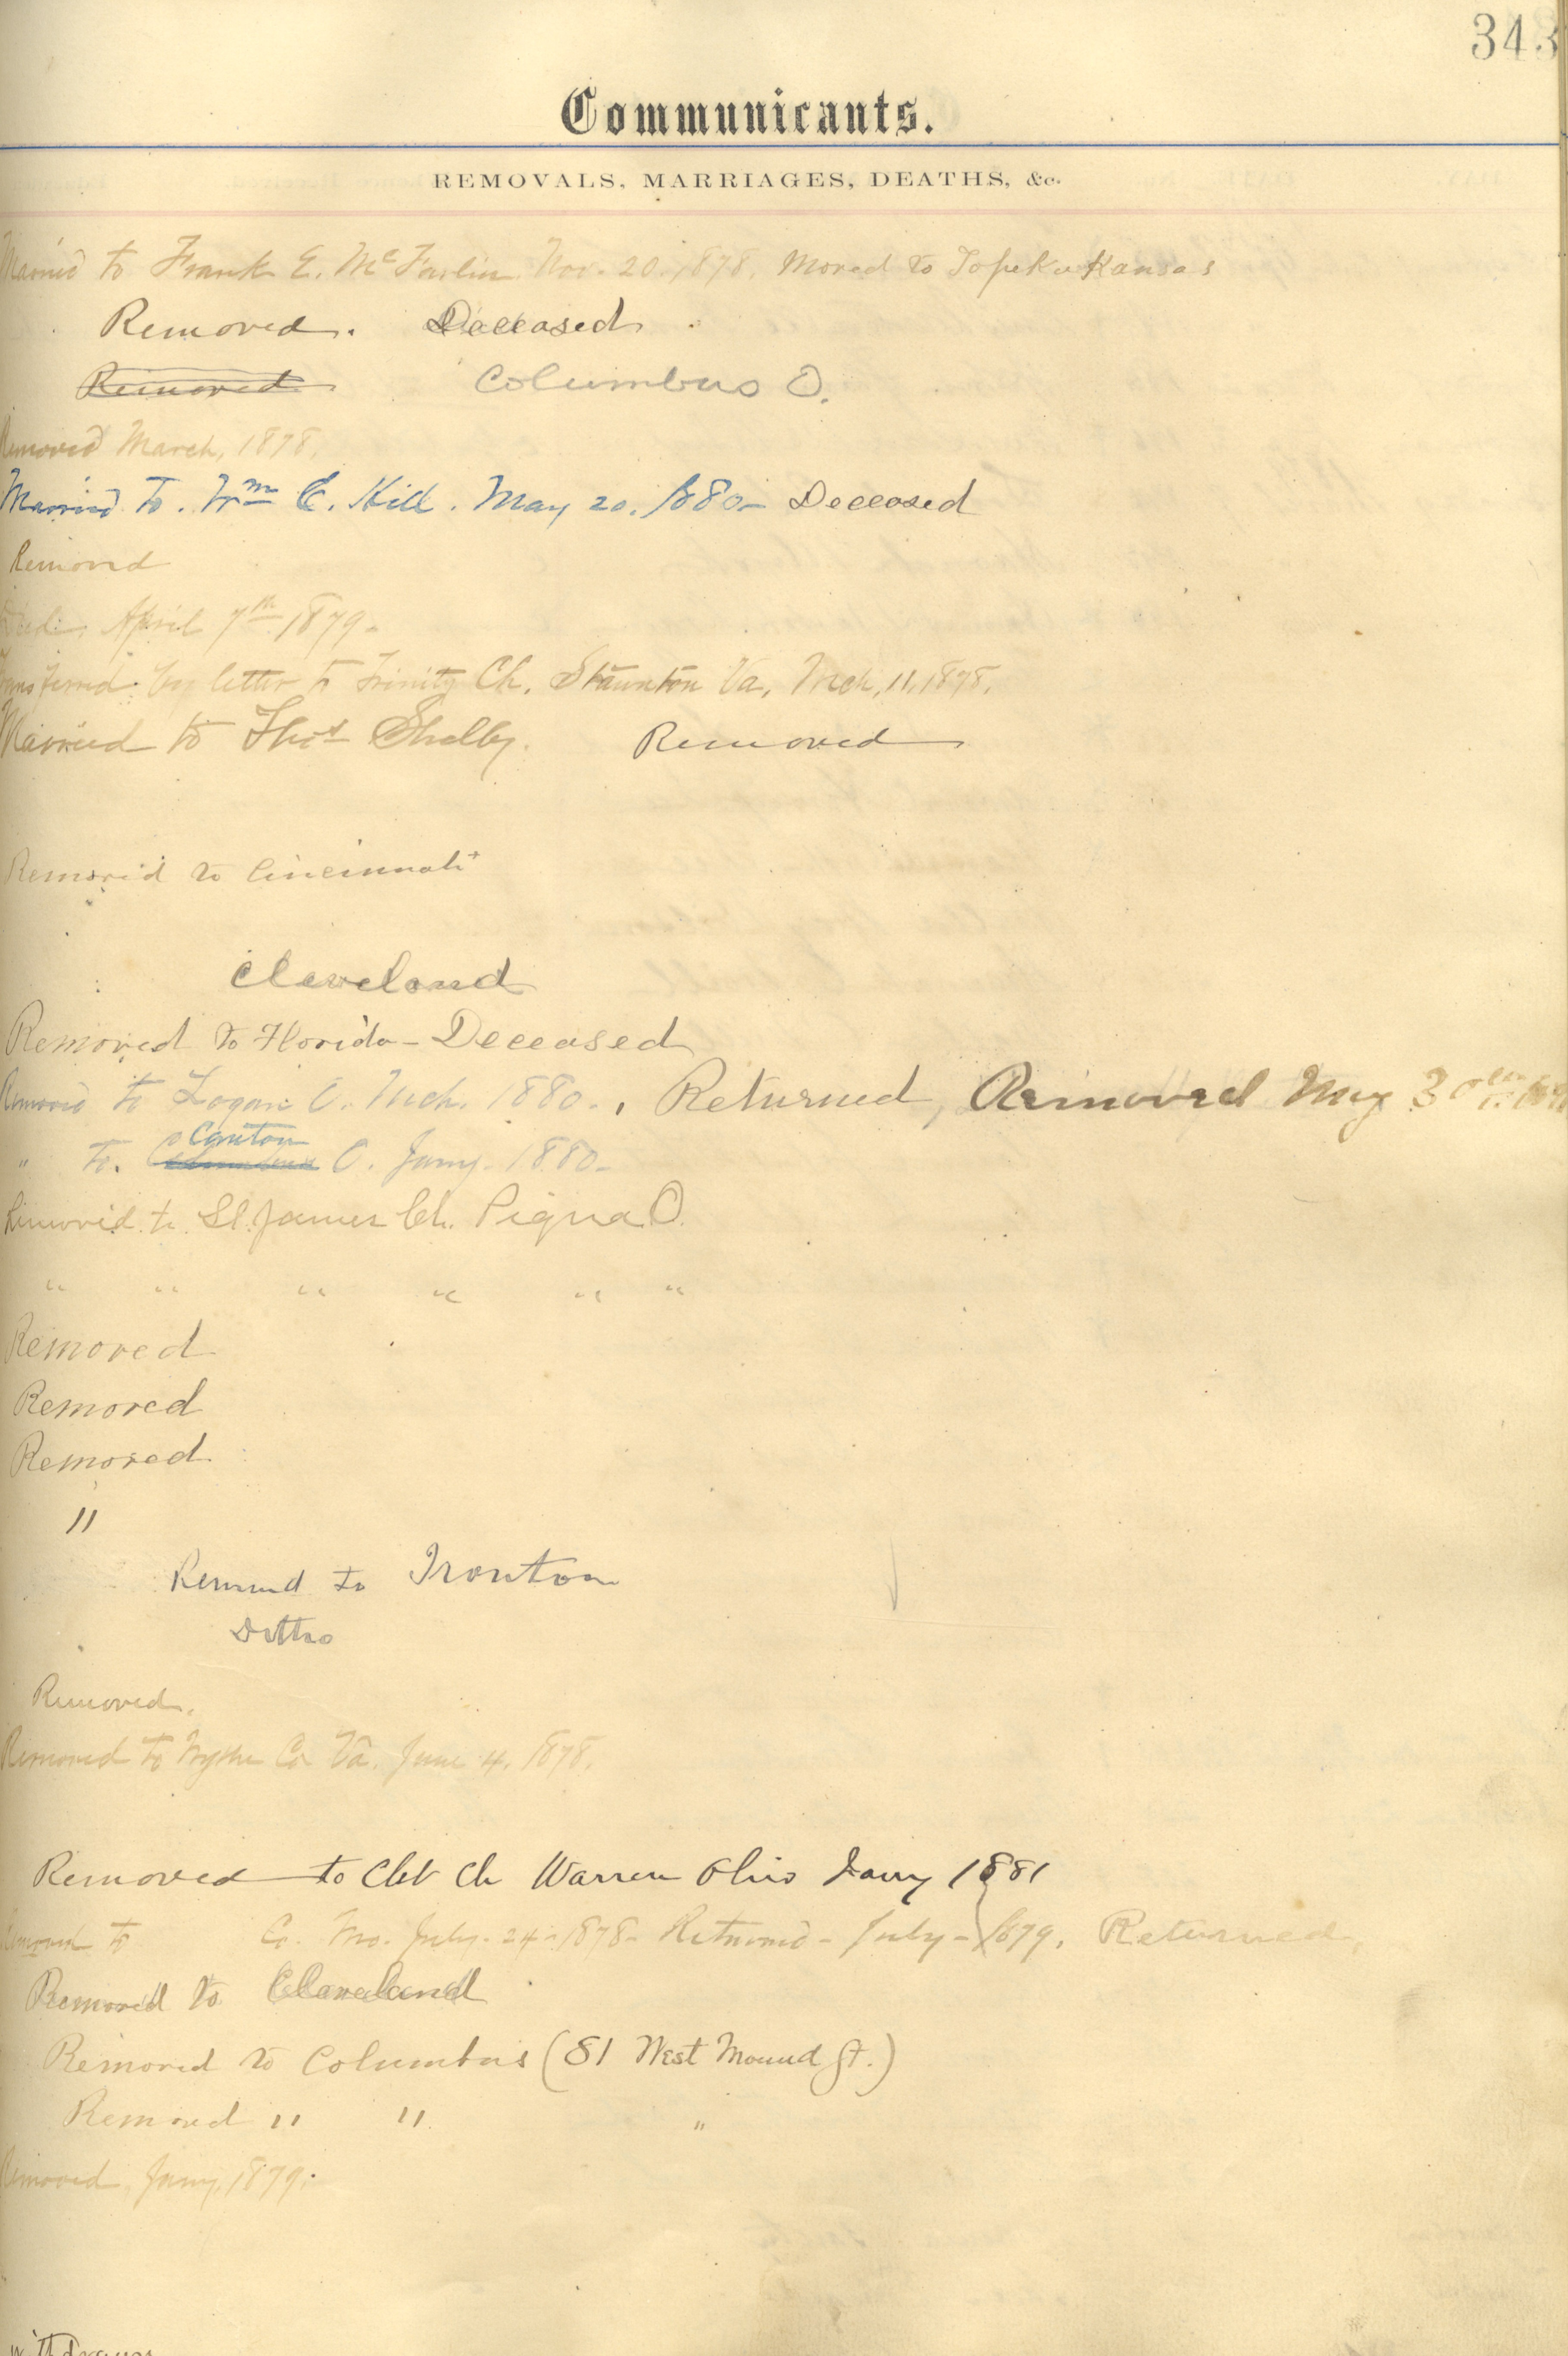 343
Communicants.
REMOVALS, MARRIAGES, DEATHS, &c.
Married to Frank E. McFarlin. Nov. 20. 1878. Moved to Topeka Kansas
Removed. Deceased
Removed Columbus O.
Removed March, 1878.
Married to. Wm E. Hill. May 20. 1880- Deceased
Removed
Died. April 7th 1879-
Transferred by letter to Trinity Ch. Staunton Va, Mch, 11, 1878.
Married to Thos Shelby. Removed
Removed to Cincinnati
Cleveland
Removed to Florida - Deceased
Removed to Logan O. Mch. 1880. , Returned, Removed May 30th
" to. Canton O. Jany. 1880-
Removed to St. James Ch. Piqua O.
" " " " " "
Removed
Removed
Removed
"
Removed to Ironton
Ditto
Removed.
Removed to Wythe Co Va. June 4. 1878.
Removed to Cht Ch Warren Ohio Jany 1881
Removed to Co. Mo. July- 24- 1878- Returned - July - 1879. Returned,
Removed to Cleveland
Removed to Columbus (81 West Mound St.)
Removed " " "
Removed Jany. 1879.